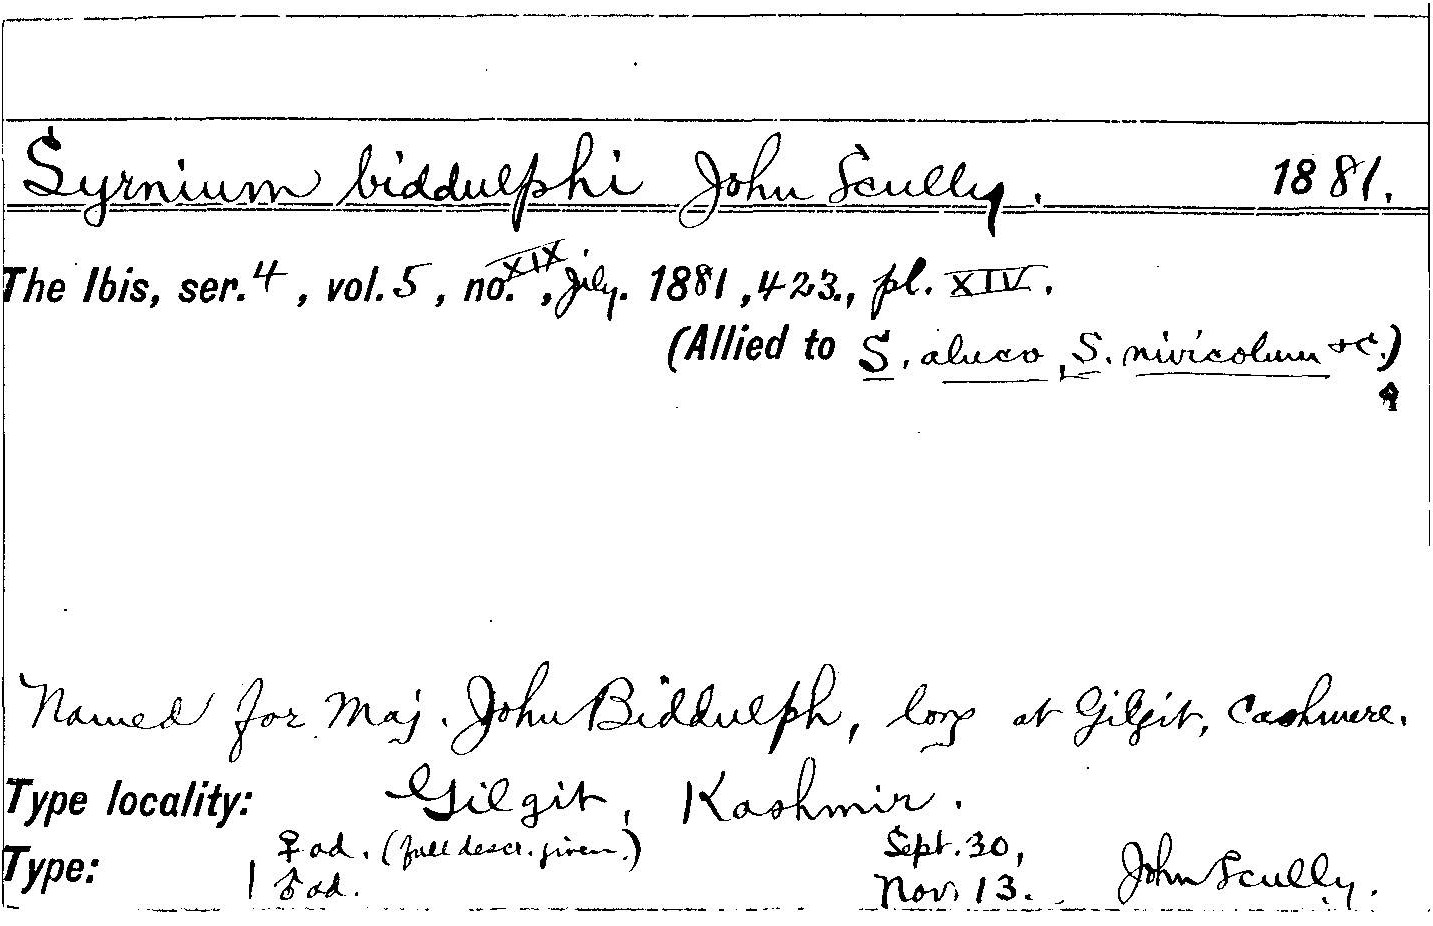 Syrnium biddulphi John Scully. 1881.
The Ibis, ser. 4, vol. 5, no. XIX, July. 1881, 423., pl. XIV.
(Allied to S. aluco, S. nivicolum &c.)
Named for Maj. John Biddulph, long at Gilgit, Cashmere.
Type locality: Gilgit, Kashmir.
♀ ad. (full descr. given.) Sept. 30,
Type: 1 ♂ ad. Nov. 13. John Scully.